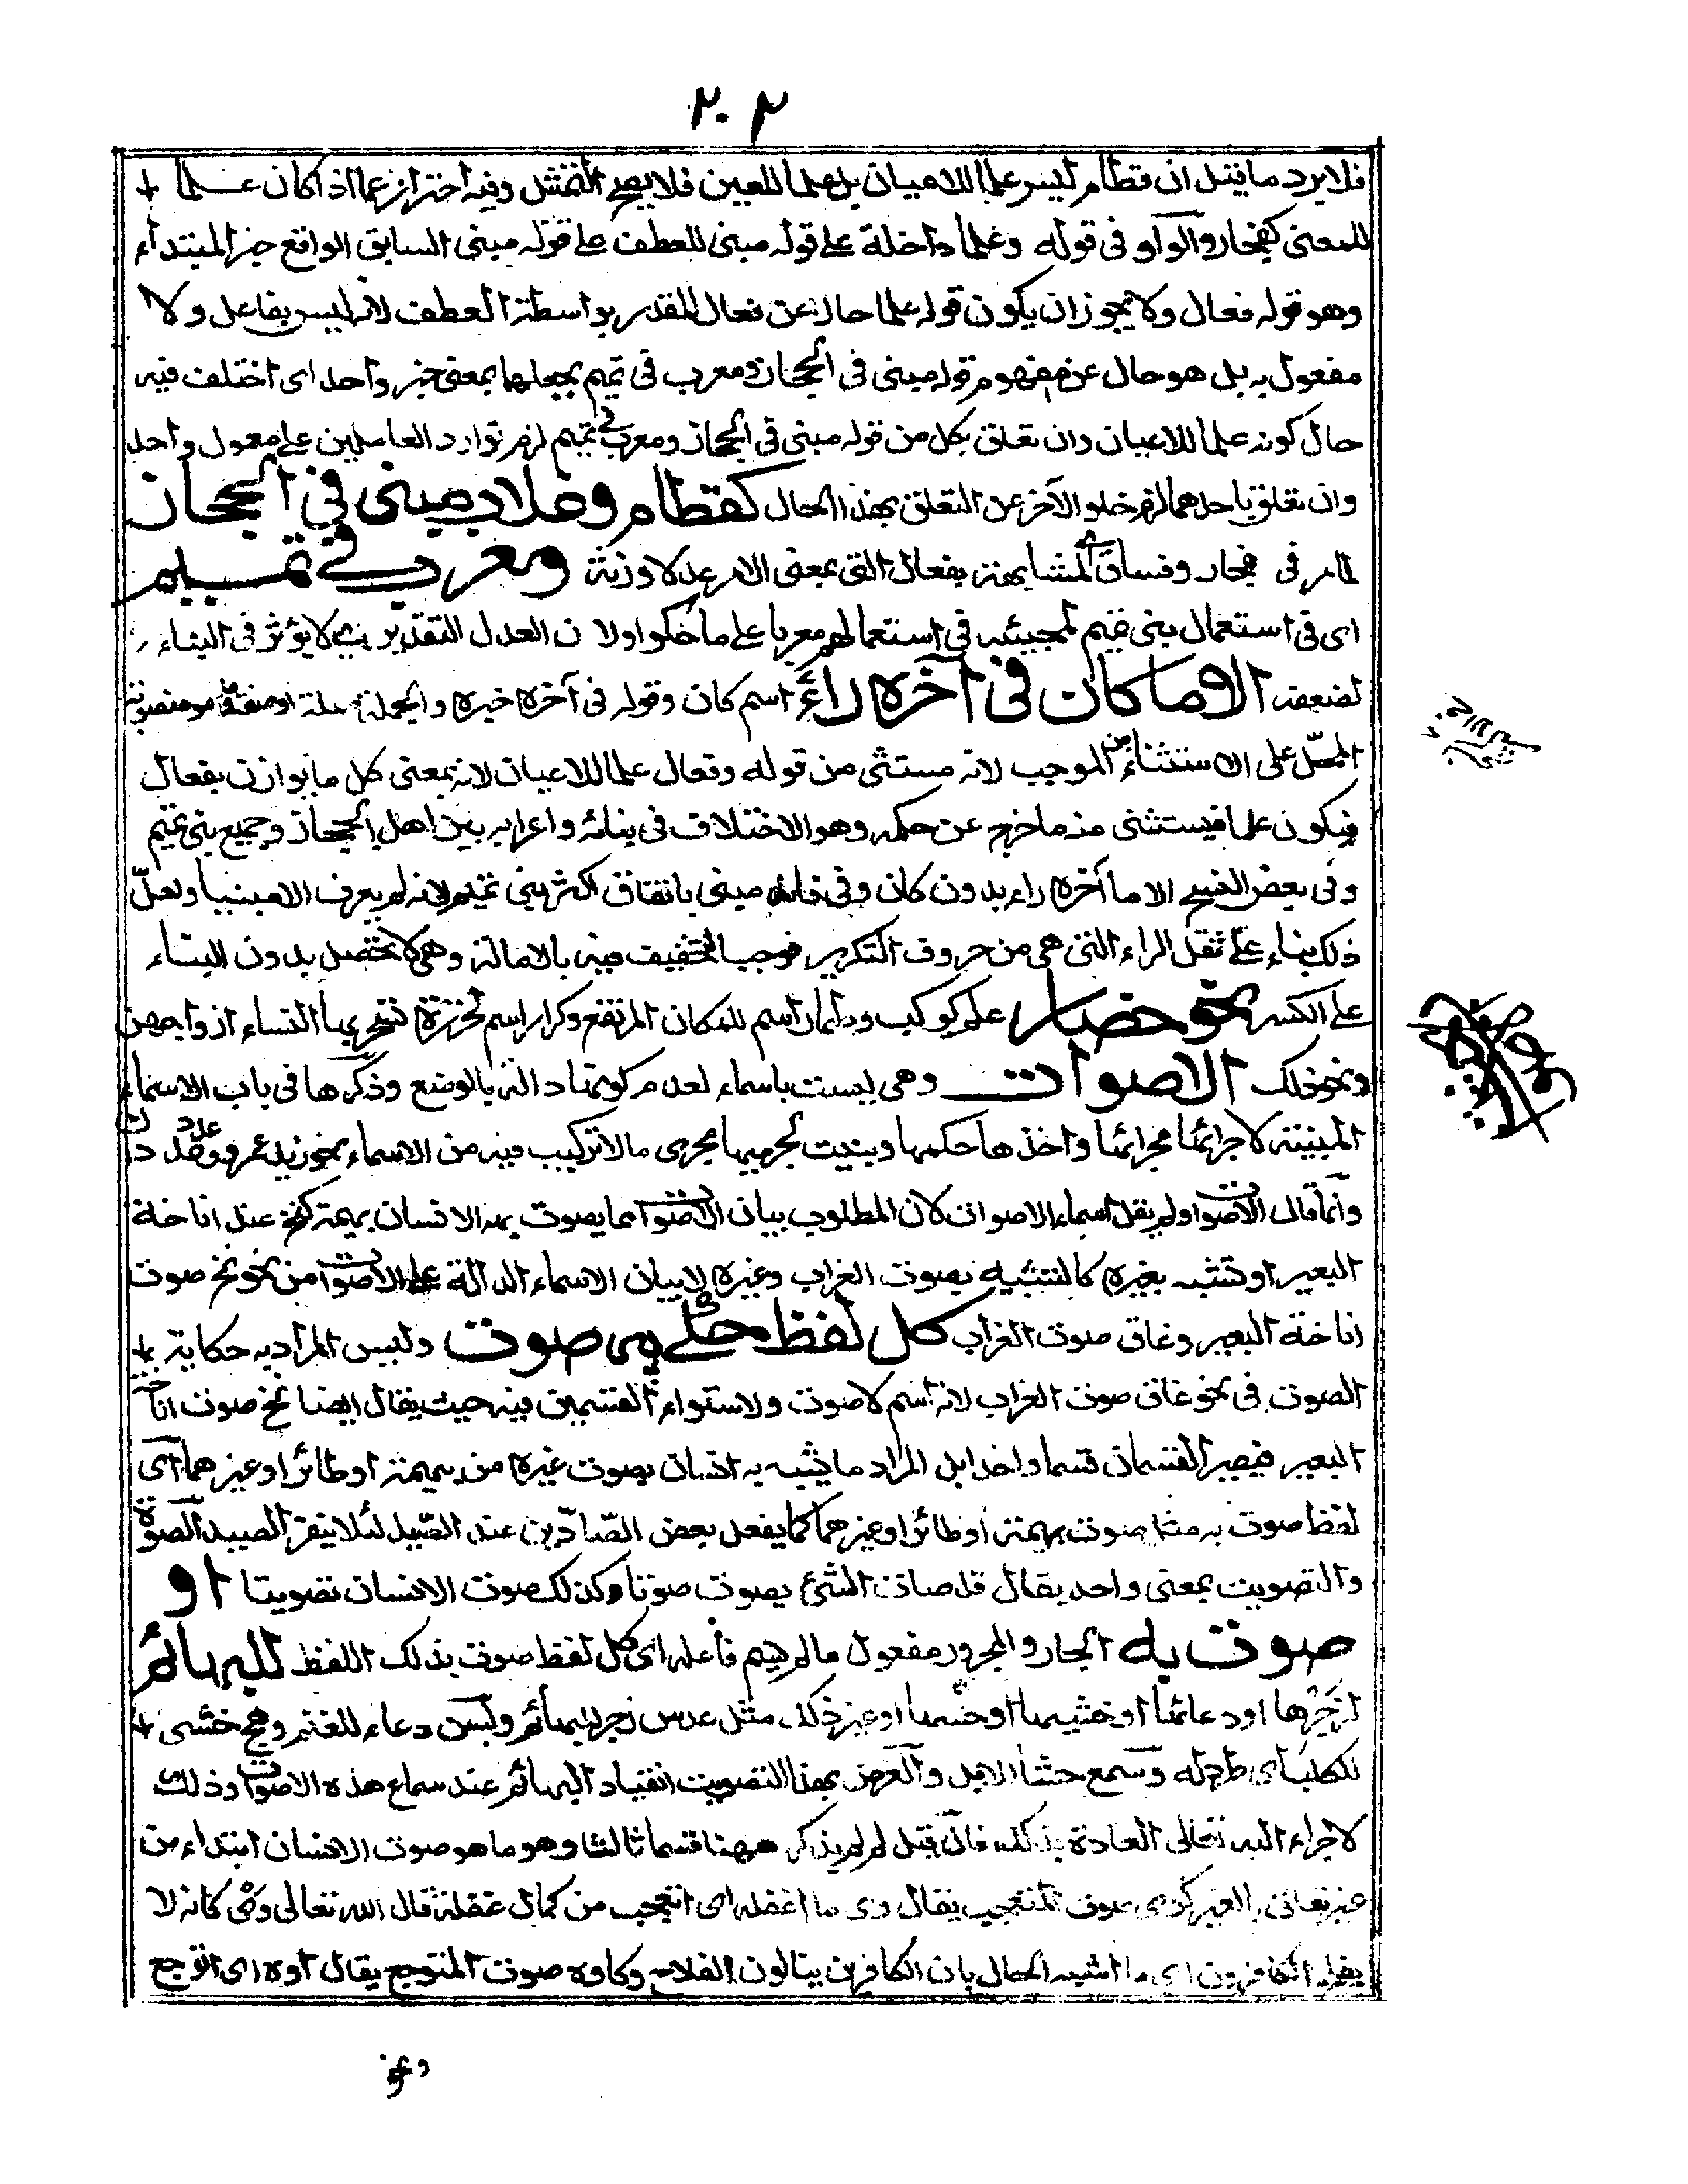 ٢٠٣
فلا يرد ما قيل ان قطام ليس علما للاعيان بل علما للعين فلا يصح التمثيل وفيه احتراز عما اذا كان علما
للمعنى كفجار والواو فى قوله وعلما داخلة على قوله مبنى للعطف على قوله مبنى السابق الواقع خبر المبتداء
وهو قوله فعال ولا يجوز ان يكون قوله علما حال عن فعال المقدر بواسطة العطف لانه ليس بفاعل ولا
مفعول به بل هو حال عن مفهوم قوله مبنى فى الحجاز ومعرب فى تميم بجعلهما بمعنى خبر واحد اى اختلف فيه
حال كونه علما للاعيان وان تعلق بكل من قوله مبنى فى الحجاز ومعرب فى تميم لزم توارد العاملين على معمول واحد
وان تعلق باحدهما لزم خلو الآخر عن التعلق بهذا الحال كقطام وغلاب مبنى فى الحجاز
لما مر فى فجار وفساق لمشابهته بفعال التى بمعنى الامر عدلا وزنة ومعرب فى تميم
اى فى استعمال بنى تميم لمجيئه فى استعمالهم معربا على ما حكوا ولان العدل التقديرى لا يؤثر فى البناء
لضعفه الا ما كان فى آخره راء اسم كان وقوله فى آخره خبره والجملة صلة او صفة ما وهو منصوبة
المحل على الاستثناء من الموجب لانه مستثنى من قوله وفعال علما للاعيان لانه بمعنى كل ما يوازن بفعال
فيكون علما فيستثنى منه ما خرج عن حكمه وهو الاختلاف فى بنائه واعرابه بين اهل الحجاز وجميع بنى تميم
وفى بعض النسخ الا ما آخره راء بدون كان وفى فانه مبنى باتفاق اكثر بنى تميم لانه لم يعرف الا مبنيا ولعل
ذلك بناء على ثقل الراء التى هى من حروف التكرير فوجب التخفيف فيه بالامالة وهى لا تحصل بدون البناء
على الكسر نحو حضار علم كوكب وطمار اسم للمكان المرتفع وكرار اسم لخرزة تسخر بها النساء ازواجهن
ونحو ذلك الاصوات وهى ليست باسماء لعدم كونها دالة بالوضع وذكرها فى باب الاسماء
المبنية لاجرائها مجرائها واخذها حكمها وبنيت لجريها مجرى ما لا تركيب فيه من الاسماء نحو زيد عمرو
وانما قال الاصوات ولم يقل اسماء الاصوات لان المطلوب بيان الاصوات مما يصوت به الانسان بهيمة كنخ عند اناخة
البعير او تشبه بغيره كالتشبيه بصوت الغراب وغيره لا بيان الاسماء الدالة على الاصوات من نحو نخ صوت
اناخة البعير وغاق صوت الغراب كل لفظ حكى به صوت وليس المراد به حكاية
الصوت فى نحو غاق صوت الغراب لانه اسم لا صوت ولاستواء القسمين فيه حيث يقال ايضا نخ صوت اناخة
البعير فيصير القسمان قسما واحدا بل المراد ما يشبه به انسان بصوت غيره من بهيمة او طائر او غيرهما اى
لفظ صوت به مثل صوت بهيمة او طائر او غيرهما كما يفعل بعض الصيادين عند الصيد لئلا ينفر الصيد الصوت
والتصويت بمعنى واحد يقال قد صات الشئ يصوت صوتا وكذلك صوت الانسان تصويتا او
صوت به الجار والمجرور مفعول ما لم يسم فاعله اى كل لفظ صوت بذلك اللفظ للبهائم
لزجرها او دعائها او حثها او غير ذلك مثل عدس زجر للبهائم وبس دعاء للغنم وهج خشى
للكلب اى طرد له وسمع حثا للابل والغرض بهذا التصويت انقياد البهائم عند سماع هذه الاصوات وذلك
لاجراء الله تعالى العادة بذلك فان قيل لم لم يذكر ههنا قسما ثالثا وهو ما هو صوت الانسان ابتداء من
غير تعلق بالغير كوى صوت المتعجب يقال وى ما اغفله اى اتعجب من كمال غفلته قال الله تعالى وى كانه لا
يفلح الكافرون اى ما اشبه الحال بان الكافرين ينالون الفلاح وكاوه صوت المتوجع يقال اوه اى اتوجع